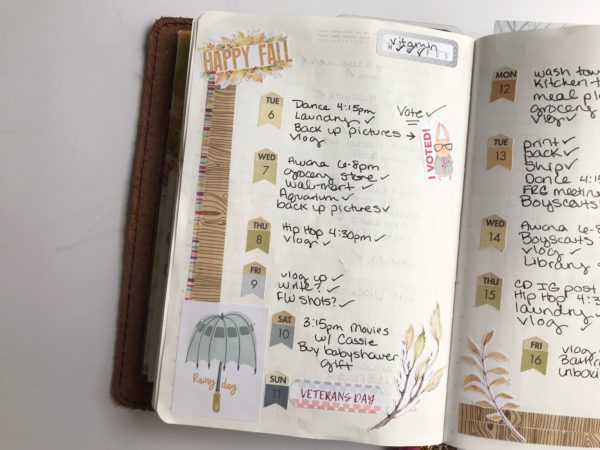 HAPPY FALL
Vitamin
TUE
6
Dance 4:15pm
Laundry ✓
Back up pictures →
vlog
Vote ✓
I VOTED!
WED
7
Awana 6-8pm
grocery store ✓
Wal-mart ✓
Aquarium ✓
back up pictures ✓
THU
8
Hip Hop 4:30pm ✓
vlog ✓
FRI
9
vlog up ✓
write? ✓
Flu shots? ✓
SAT
10
3:15pm Movies
w/ Cassie
Buy babyshower
gift
Rainy day
SUN
11
VETERANS DAY
MON
12
wash
kitchen
meal
grocery
vlog ✓
TUE
13
print ✓
pack ✓
ship ✓
Dance 4:1
FRG meeting
Boyscouts
WED
14
Awana 6-8
Boyscouts
vlog ✓
Library
THU
15
CD IG post
Hip Hop 4:3
laundry ✓
vlog ✓
FRI
16
vlog